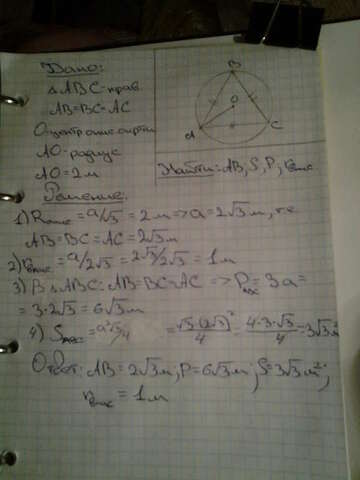 Дано:
△ABC-прав.
AB=BC=AC
O-центр опис. окр-ти
AO-радиус
AO=2м
B
O
A
C
Найти: AB, S, P, rвпис
Решение.
1) Rопис = a/√3 = 2м => a = 2√3 м, т.е
AB=BC=AC=2√3 м
2) rвпис = a/2√3 = 2√3/2√3 = 1м
3) В △ABC: AB=BC=AC => PABC = 3a =
= 3·2√3 = 6√3 м
4) SABC = a²√3/4 = √3·(2√3)²/4 = 4·3·√3/4 = 3√3 м²
Ответ: AB=2√3 м; P=6√3 м; S=3√3 м²;
rвпис = 1м